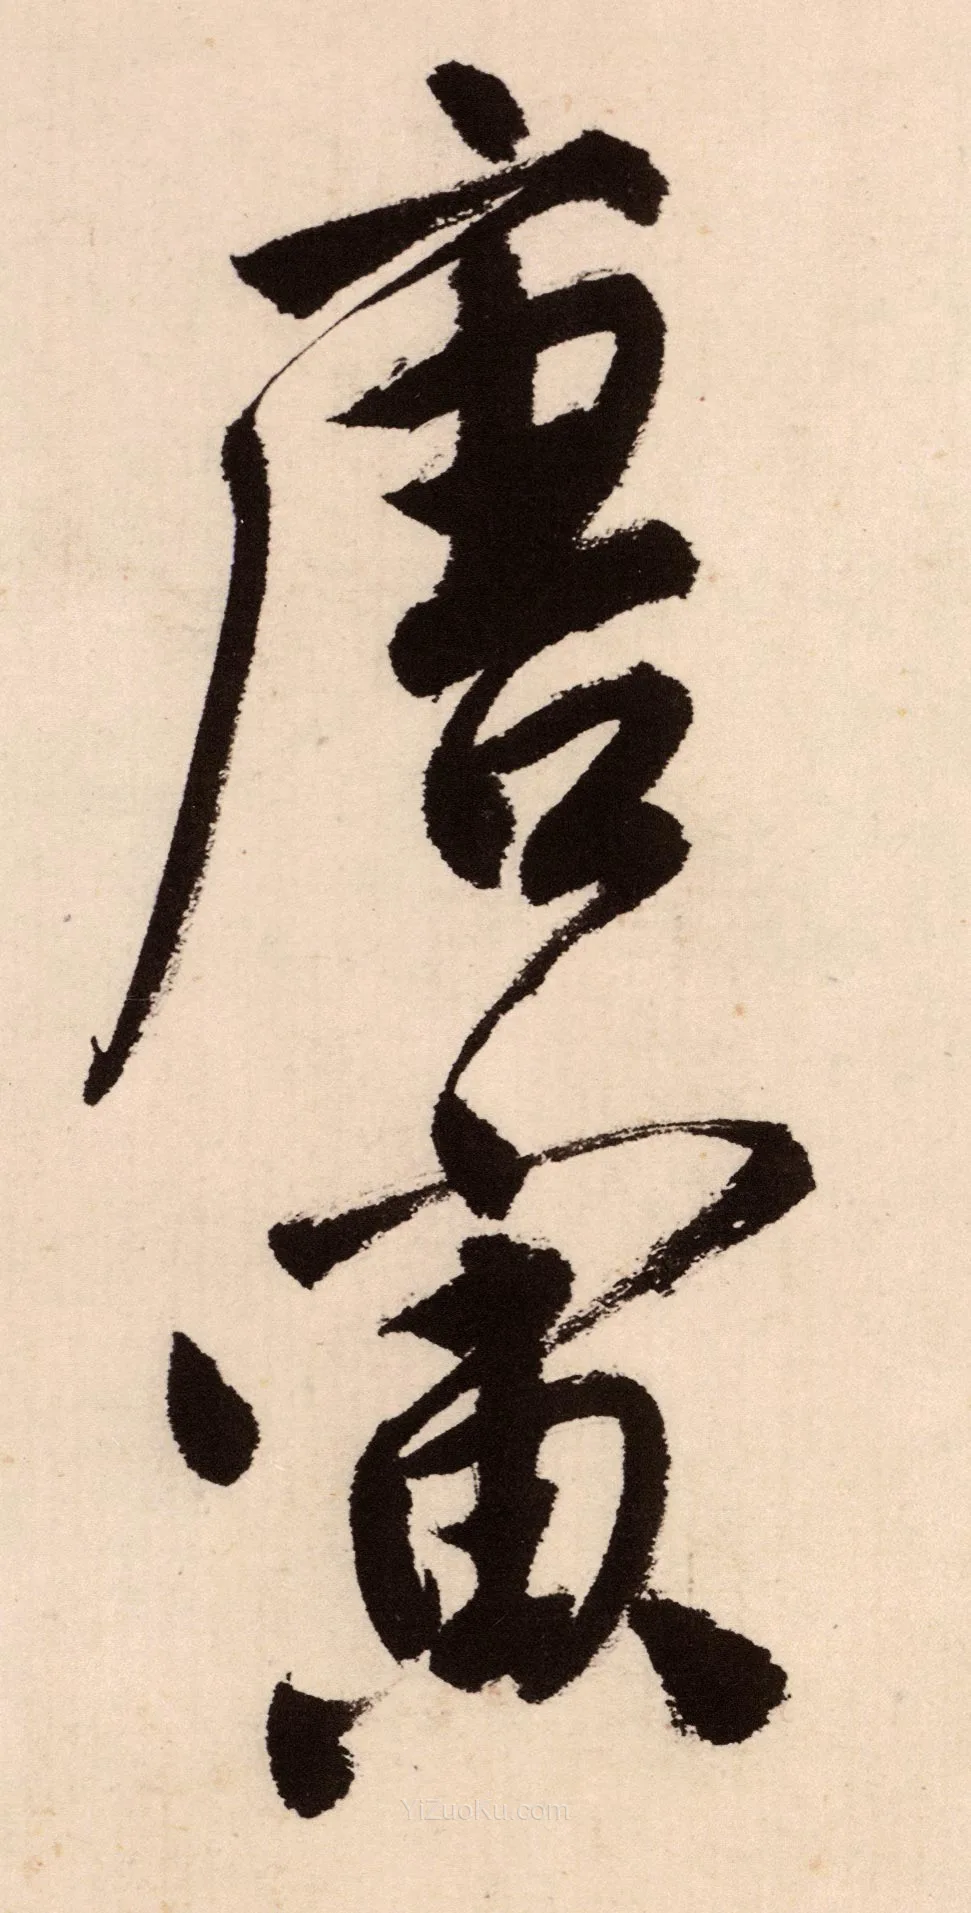 唐寅
YiZuoKu.com